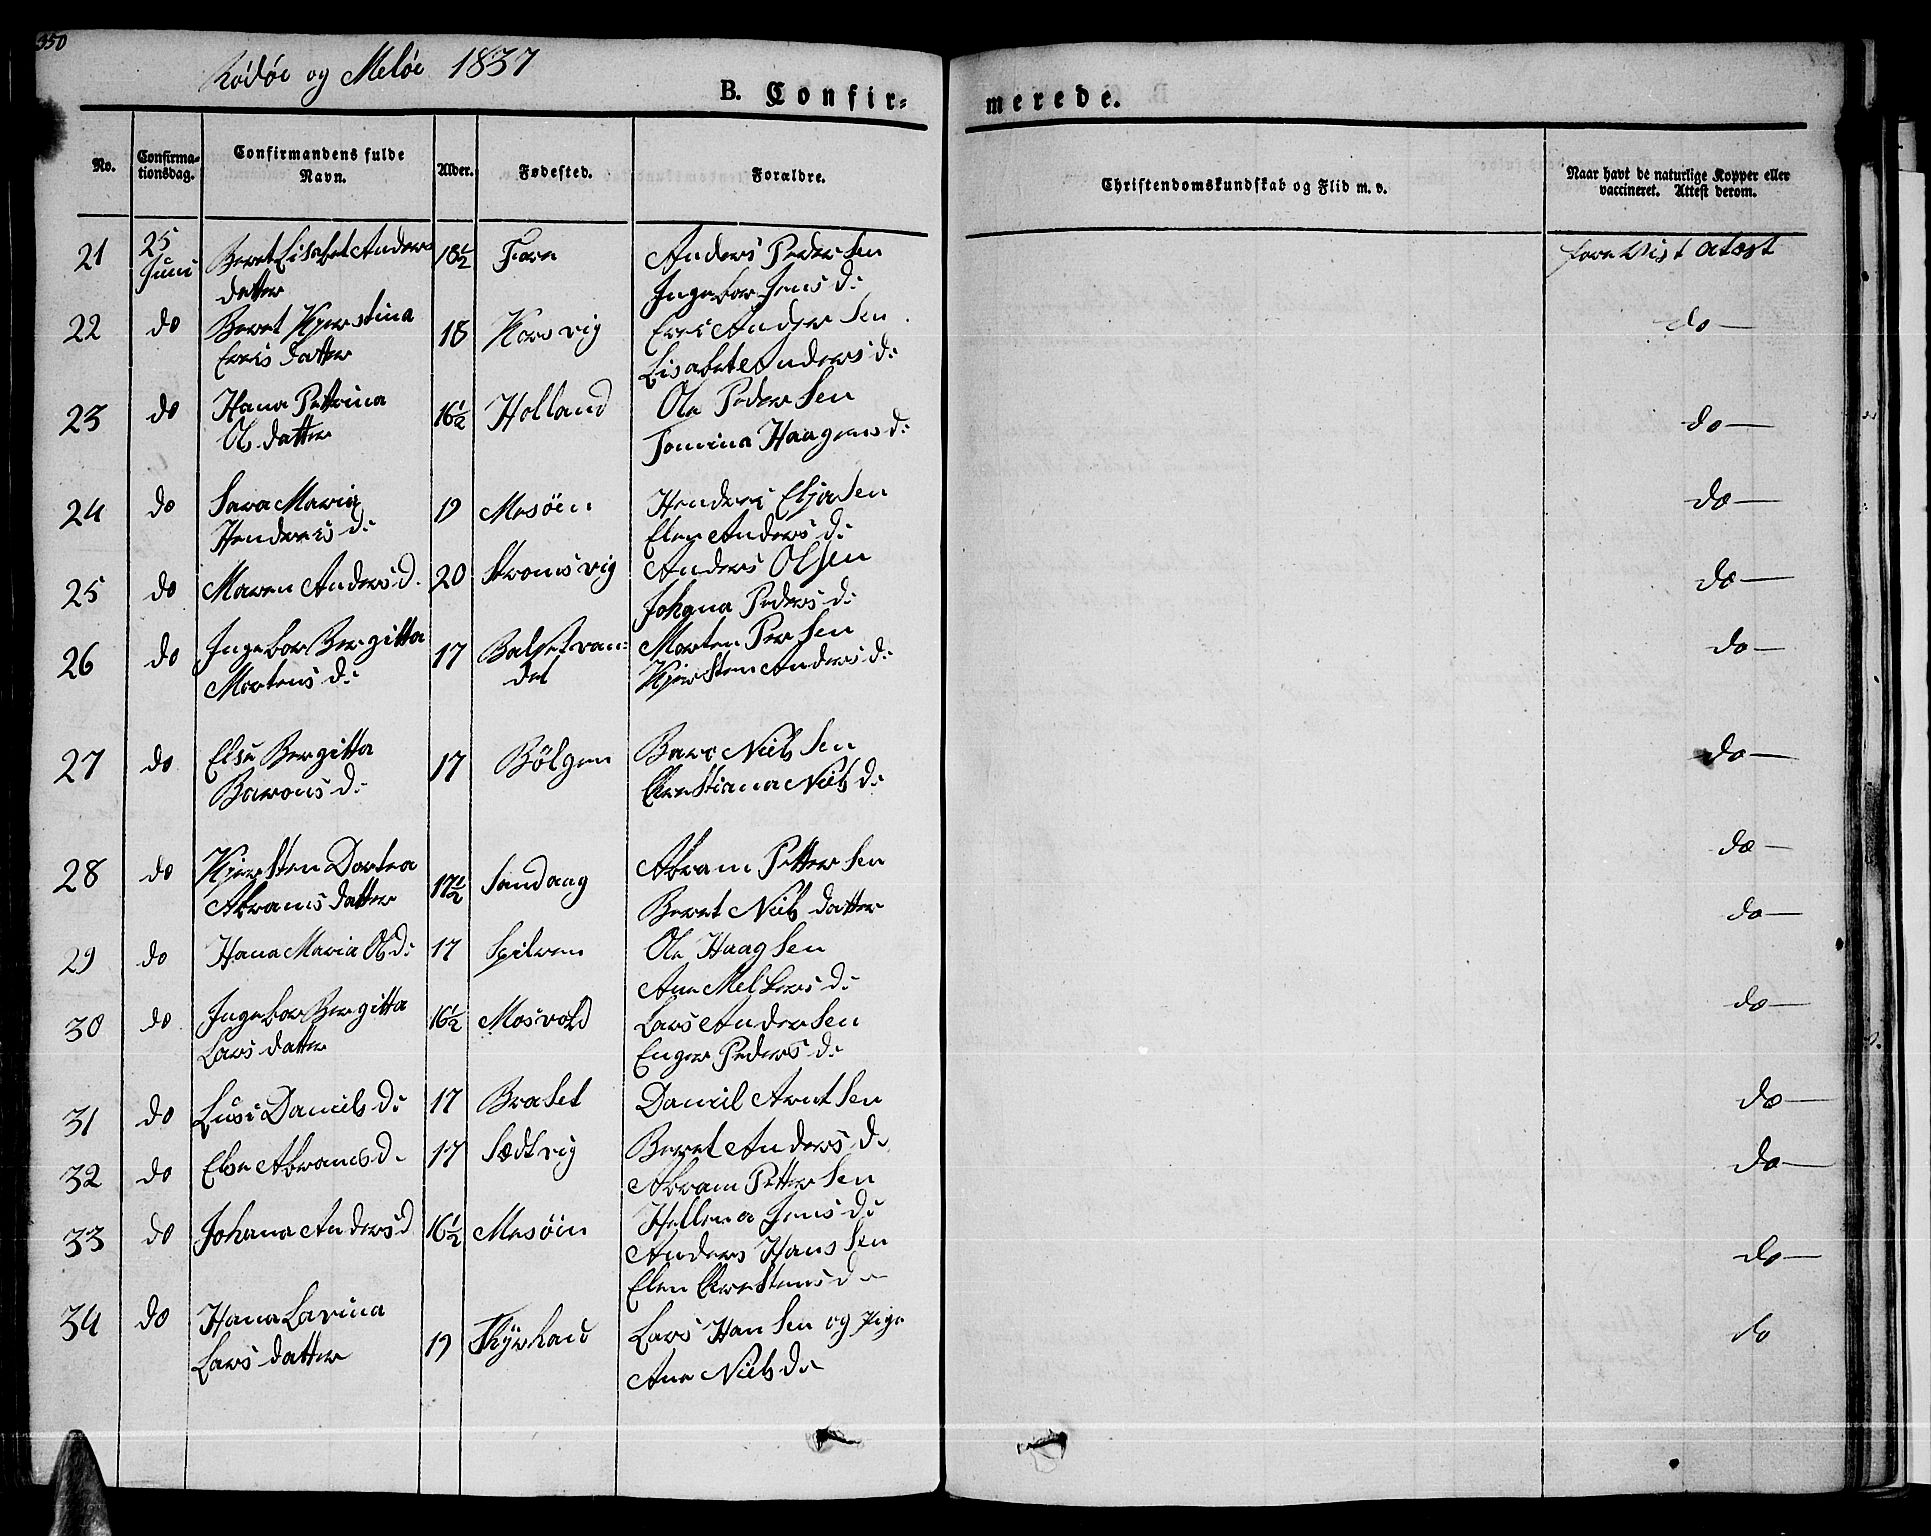 350
Rödöe og Melöe 1837
B. Confir= merede.
No.
Confirma=
tionsdag.
Confirmandens fulde
Navn.
Alder.
Fødested.
Forældre.
Christendomskundskab og Flid m. v.
Naar havt de naturlige Kopper eller
vaccineret. Attest derom.
21 25 Juni Beret Lisabet Anders datter 18½ Fore Anders Pedersen
Ingebor Jens d: foreVist atest
22 do Beret Kjerstina Erres datter 18 Korsvig Erres Andersen
Lisabet Anders d: do
23 do Hana Pettrina Ols datter 16½ Holland Ole Pedersen
Jomina Haagens d: do
24 do Sara Maria Hendrees d: 19 Mesöen Hendres Eljasen
Elen Anders d: do
25 do Maren Anders d. 20 Stromsvig Anders Olsen
Johana Peders d: do
26 do Ingebor Bergitta Mortens d: 17 Balsetvandet Morten Persen
Kjersten Anders d: do
27 do Else Bergitta Barons d: 17 Bölgen Baro Nielsen
Chrestiana Niels d: do
28 do Kjersten Dortea Abrams datter 17½ Sandaag Abram Pettersen
Beret Niels datter do
29 do Hana Maria Ols d: 17 Spilren Ole Haagsen
Ane Melkers d: do
30 do Ingebor Bergitta Lars datter 16½ Mosvold Lars Andersen
Enger Peders d: do
31 do Lusi Daniels d: 17 Braset Daniel Arntsen
Beret Anders d: do
32 do Else Abrams d. 17 Sædtvig Abram Pettersen
Hellena Jens d: do
33 do Johana Anders d 16½ Mesöen Anders Hanssen
Elen Chrestens d: do
34 do Hana Lavina Lars datter 19 Lars Hansen og Pige
Ane Niels d: do